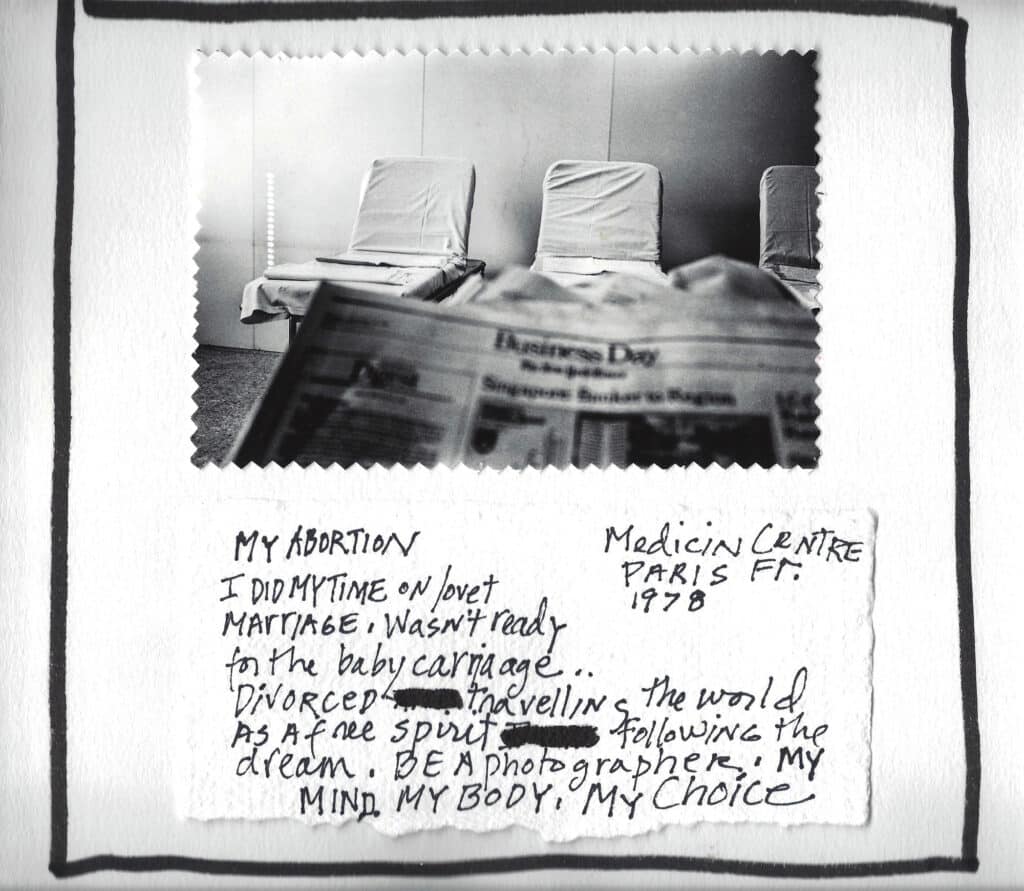 Business Day
MY ABORTION
Medicin CeNTRE
PARIS Fr.
1978
I DID MY TIME ON love+
MArrIAGE. Wasn't ready
for the baby carriaage..
DiVORCED travelling the world
AS A free spirit following the
dream. BE A photographer. My
MIND. MY BODY. My Choice